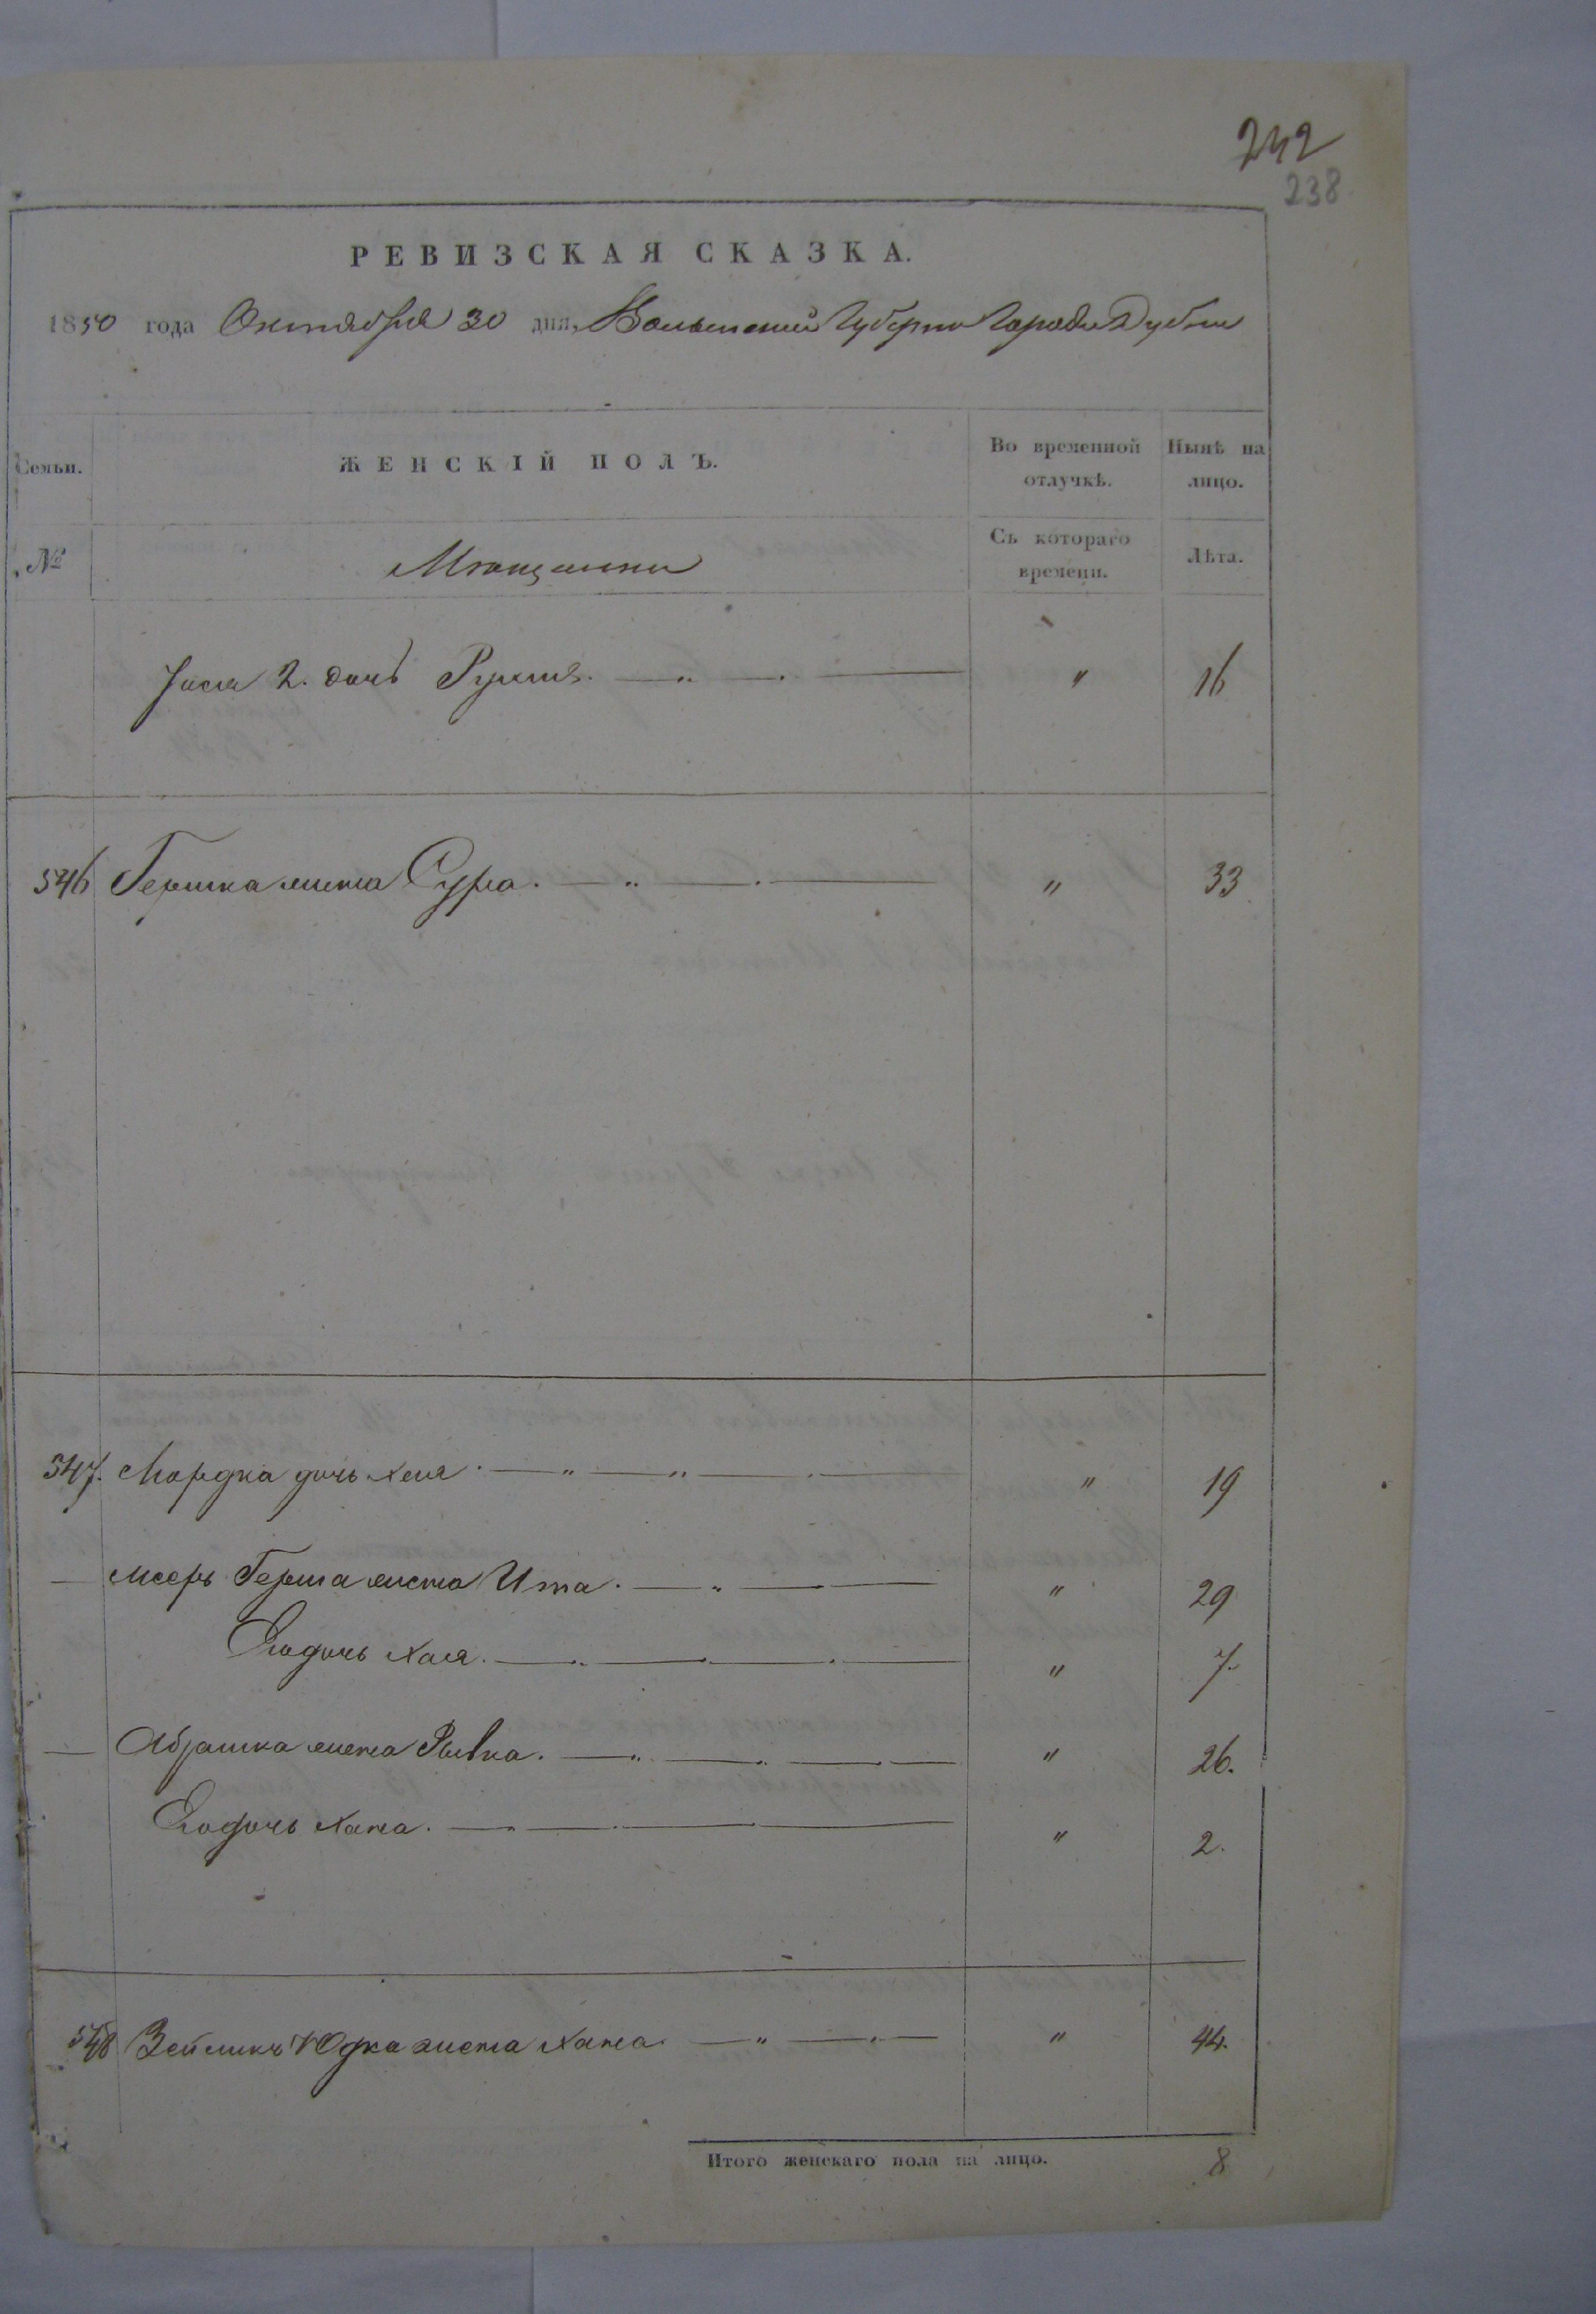 242
238
РЕВИЗСКАЯ СКАЗКА.
1850 года Октября 30 дня, Волынской Губернии Города Дубна
Семьи. ЖЕНСКІЙ ПОЛЪ. Во временной отлучкѣ. Нынѣ на лицо.
№ Мѣщанки Съ котораго времени. Лѣта.
2. дочь " 16
546 Гершка жена Сура. " 33
547. Мордка дочь Хая " 19
— Меер Герша жена Ита. " 29
Его дочь Хая. " 7.
— Абрашка жена Рывка. " 26.
Его дочь Хана. " 2.
548 Зейликъ Юдка жена Хана " 44.
Итого женскаго пола на лицо. 8